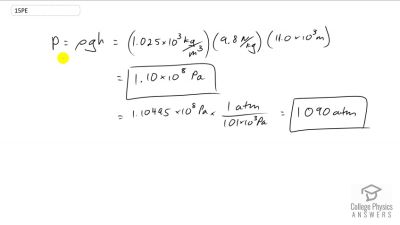 15PE
P = ρgh = (1.025×10³ kg/m³)(9.8 N/kg)(11.0×10³m)
= 1.10×10⁸ Pa
= 1.10495×10⁸ Pa × 1 atm / 1.01×10⁵Pa = 1090 atm
College Physics
ANSWERS